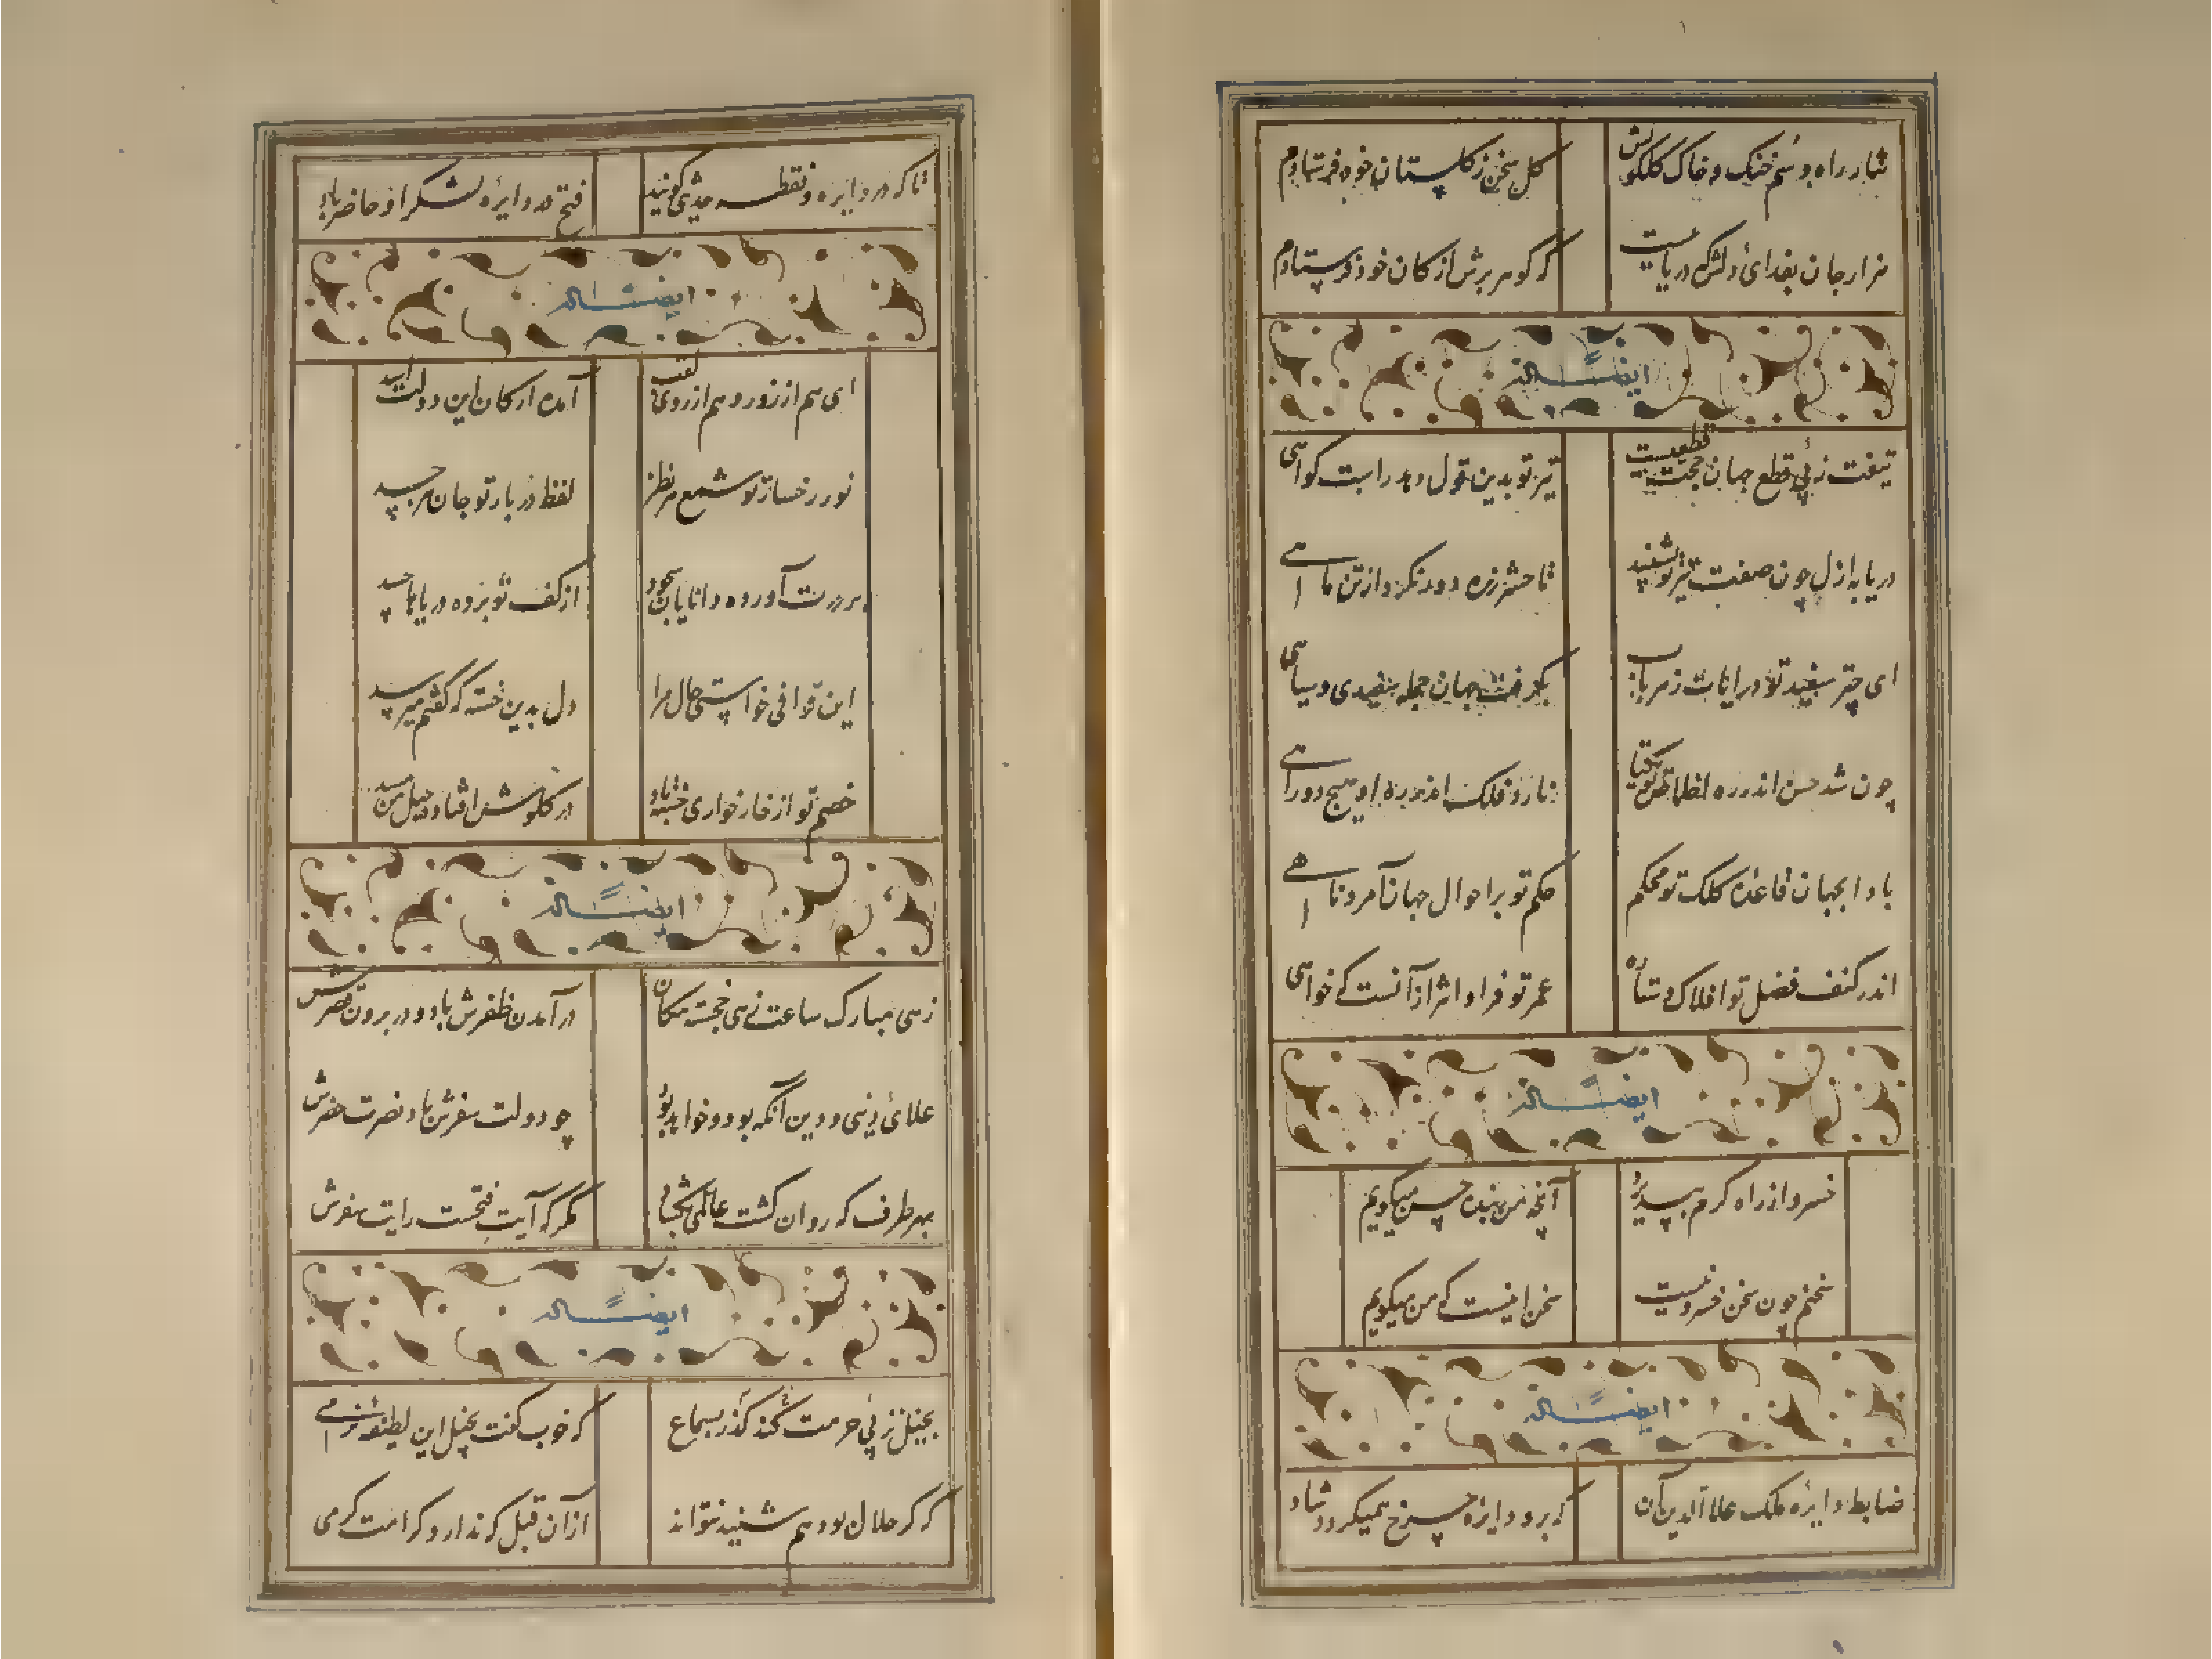 نثار راه و سم خنک و خاک گلگونش گل سخن ز گلستان خود فرستادم
هزار جان بفدای دلش که دریائیست که گوهر برش از کان خود فرستادم
ایضاً له
تیغت ز پی قطع جهان حجت قطعیست تیر تو بدین قول دهد راست گواهی
دریا به ازل چون صفت تیر تو بشنید تا حشر زره دور نکرد از تن ماهی
ای چتر سفید تو و رایات ز هر باب بگرفت جهان جمله سفیدی و سیاهی
چون شد حسن اندر ره یکتا نارد فلک اندر ره او هیچ دوراهی
بادا بجهان قاعده کلک تو محکم حکم تو بر احوال جهان آمر و ناهی
اندر کنف فضل تو افلاک و ستاره عمر تو فراوانتر از آنست که خواهی
ایضاً له
خسروا از راه کرم بپذیر آنچه من بنده حسن میگویم
سخنم چون سخن خسرو نیست سخن اینست که من میگویم
ایضاً له
ضابط دایره ملک علاء الدین آن که برو دایره چرخ همیگردد شاد
تا که در دایره و نقطه حدیثی گویند فتح در دایره لشکر او حاضر باد
ایضاً له
ای هم از زور و هم از روی لقب آمده ارکان این دولت اسد
نور رخسار تو شمع هر نظر لفظ دربار تو جان هر جسد
بر درت آورده دانایان سجود از کف تو برده دریاها حسد
این قوافی خواستی حال مرا دل بدین خسته که گفتم میرسد
خصم تو از خار خواری خسته باد در گلوش افتاده حبل من مسد
ایضاً له
زهی مبارک ساعت زهی خجسته مکان در آمدن ظفرش باد و در برون
علائی دنیی و دین آنکه بود و خواهد بود چو دولت سفرش باد نصرت حضرش
بهر طرف که روان گشت عالمی بگشاد مگر که آیت فتحست رایت سفرش
ایضاً له
بخیل ز پی حرمت نکند گذر بسماع که خوب گفت بخیل این لطیفه
که گر حلال بود هم شنید نتواند از آن قبل که ندارد کرامت کرمی